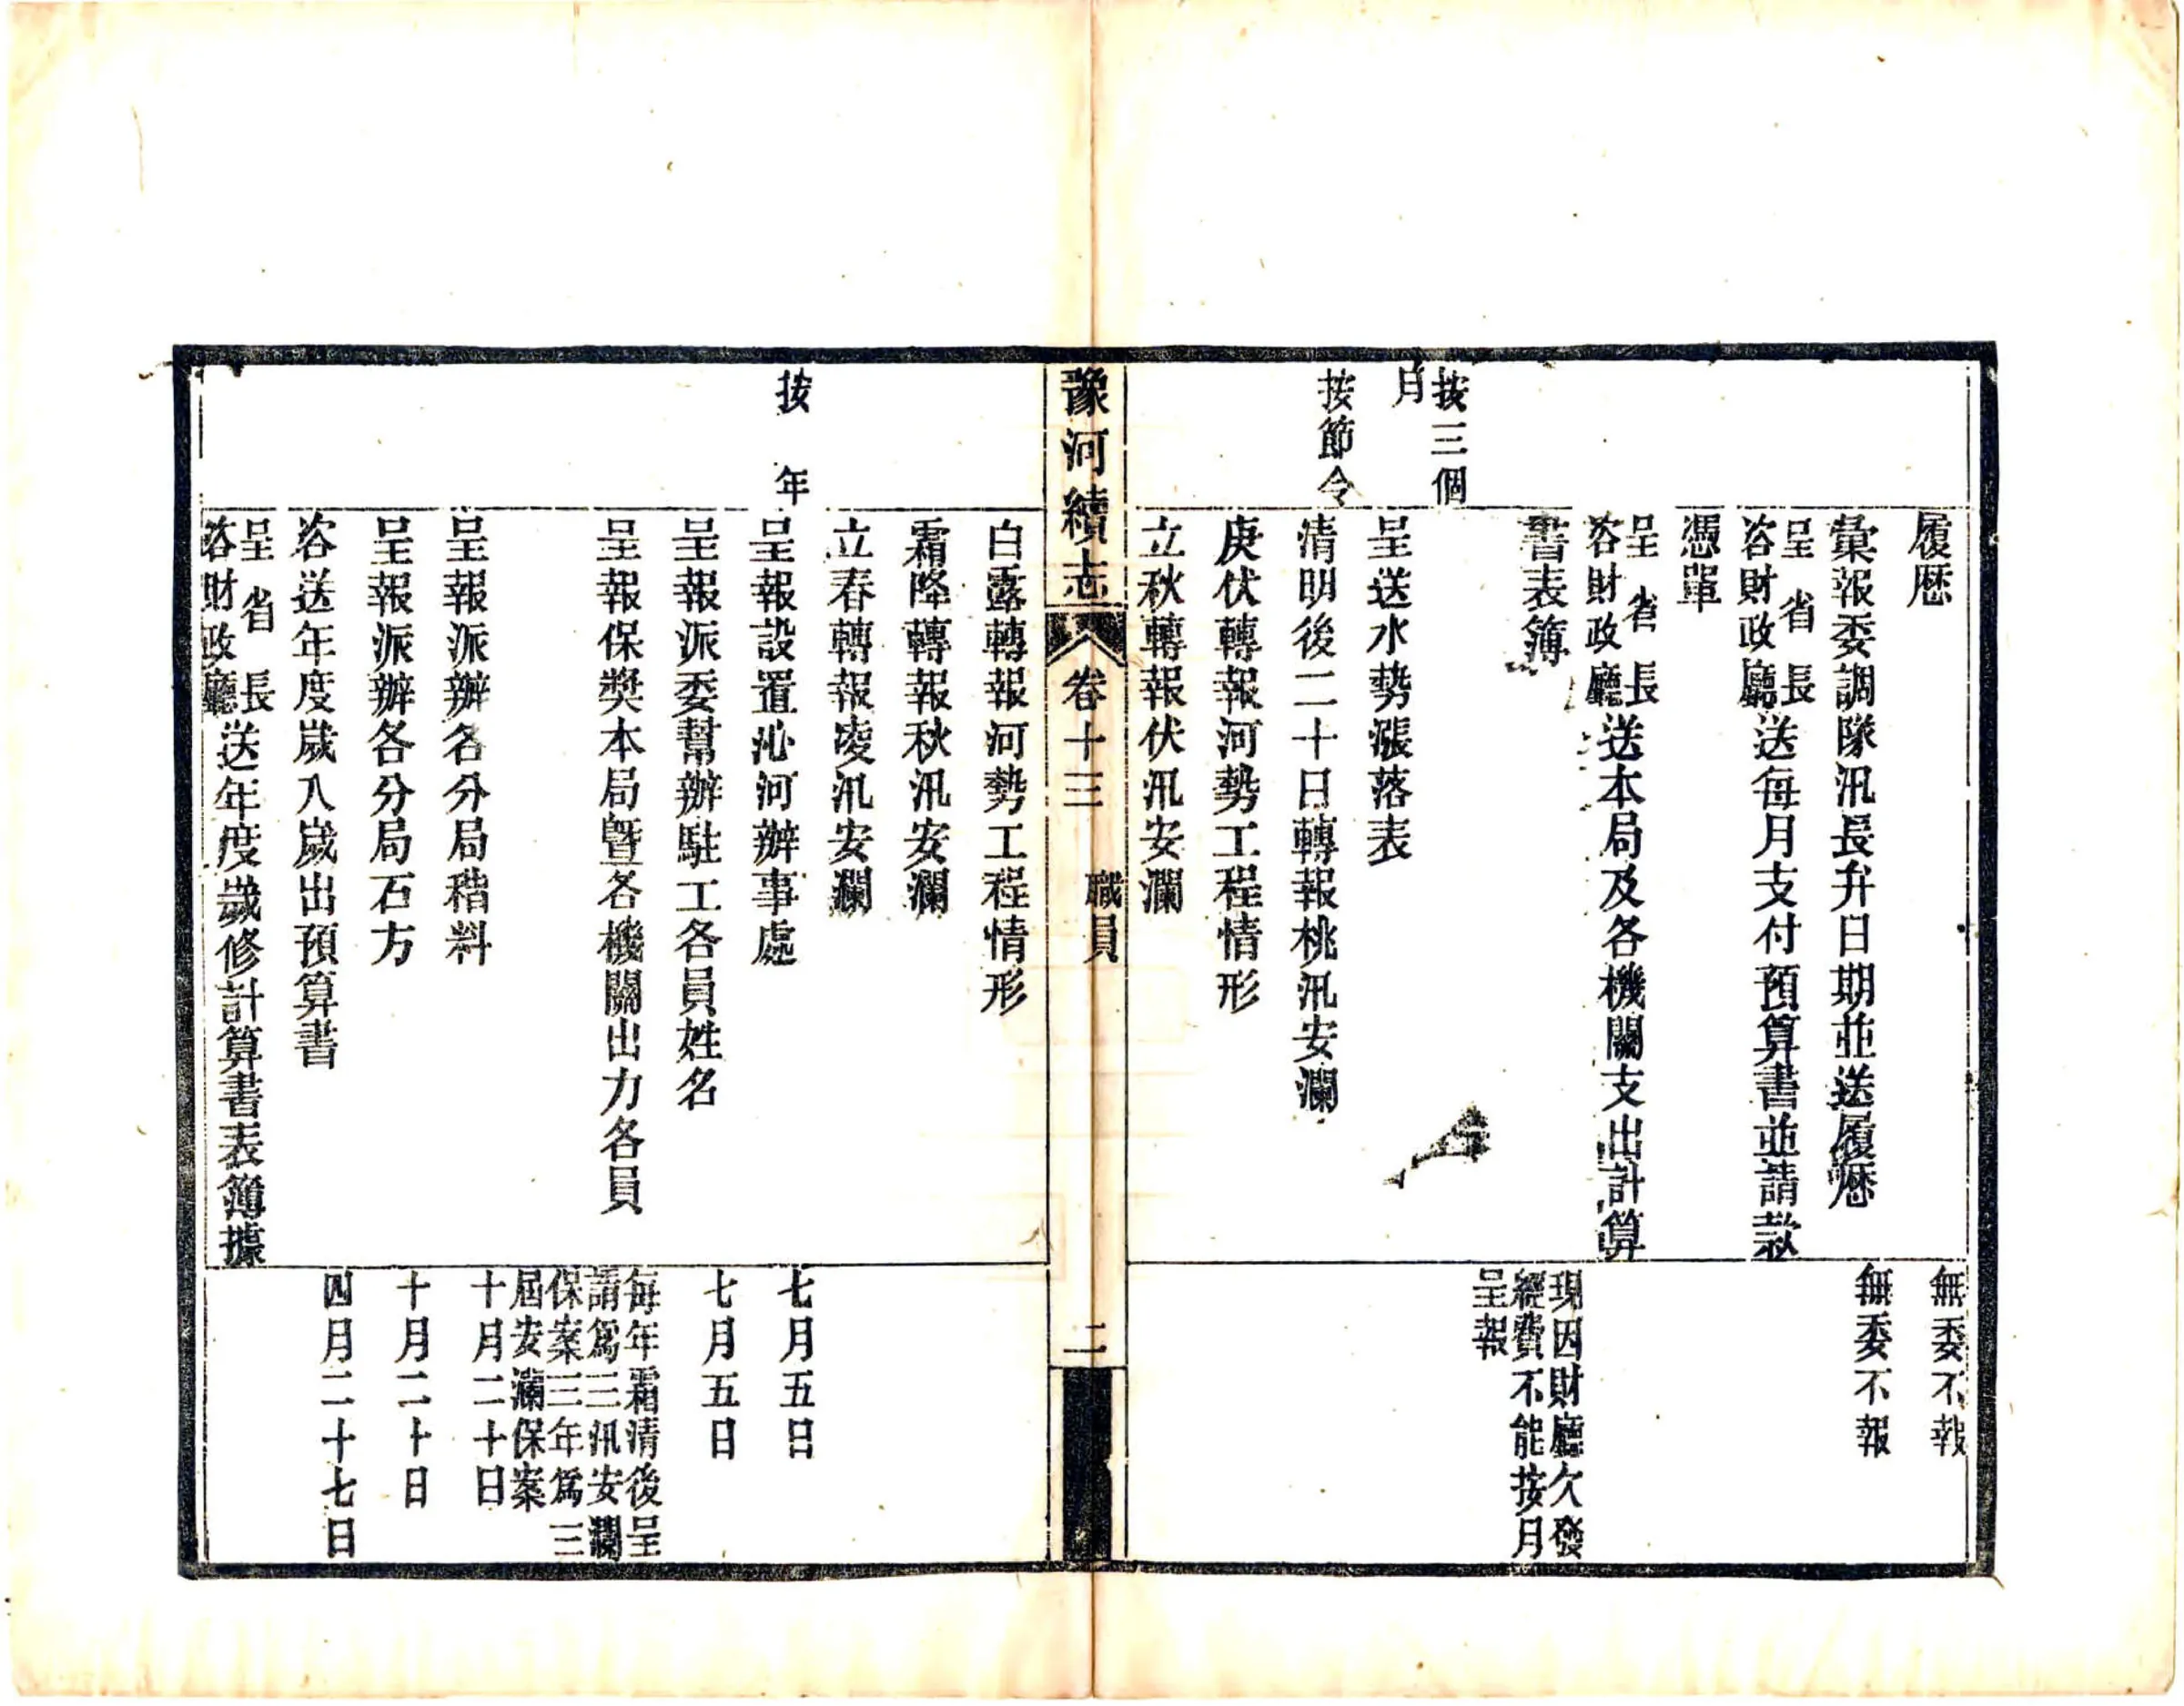 履歷
無委不報
彙報委調隊汛長弁日期並送履歷
無委不報
呈省長
咨財政廳
送每月支付預算書並請款
憑單
呈省長
咨財政廳
送本局及各機關支出計算
書表簿
現因財廳欠發
經費不能按月
呈報
按三個
月
呈送水勢漲落表
按節令
清明後二十日轉報桃汛安瀾
庚伏轉報河勢工程情形
立秋轉報伏汛安瀾
豫河續志
卷十三
職員
二
白露轉報河勢工程情形
霜降轉報秋汛安瀾
立春轉報凌汛安瀾
按年
呈報設置沁河辦事處
七月五日
呈報派委幫辦駐工各員姓名
七月五日
呈報保獎本局暨各機關出力各員
每年霜清後呈
請爲三汛安瀾
保案三年爲三
屆安瀾保案
呈報派辦各分局稭料
十月二十日
呈報派辦各分局石方
十月二十日
咨送年度歲入歲出預算書
四月二十七日
呈省長
咨財政廳
送年度歲修計算書表簿據